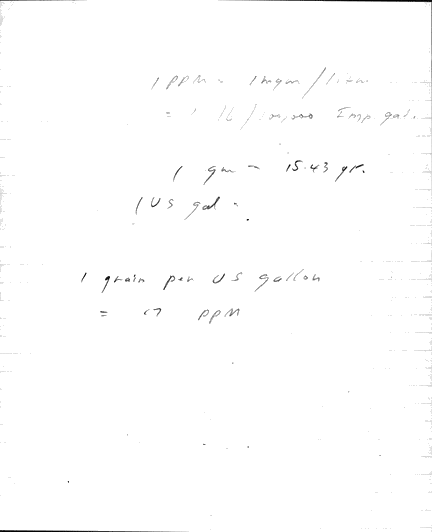 1 PPM = 1 mgm/litre
= 1 lb/100,000 Imp. gal.
1 gm = 15.43 gr.
1 US gal =
1 grain per US gallon
= 17 PPM